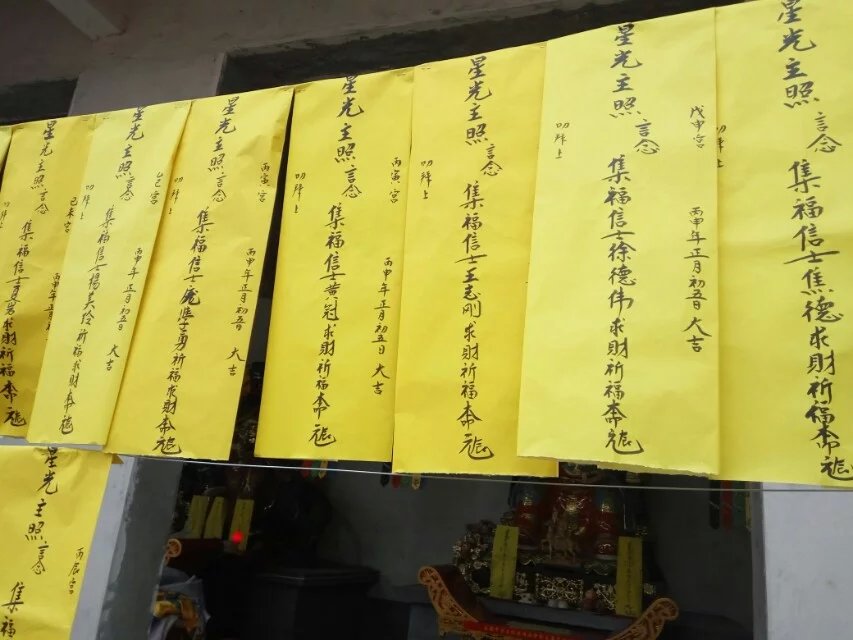 星光主照言念
集福信士焦德求財祈福奉
叩拜上
戊申宮
丙申年正月初五日大吉
星光主照言念
集福信士徐德伟求財祈福奉
叩拜上
星光主照言念
集福信士王志刚求財祈福奉
叩拜上
丙寅宮
丙申年正月初五日大吉
星光主照言念
集福信士黄冠求財祈福奉
叩拜上
丙寅宮
丙申年正月初五日大吉
星光主照言念
集福信士
勇祈福求財奉
叩拜上
乙巳宮
丙申年正月初五日大吉
星光主照言念
集福信士楊美玲祈福求財奉
叩拜上
己未宮
星光主照言念
集福信士
求財祈福奉
丙辰宮
星光主照言念
集福